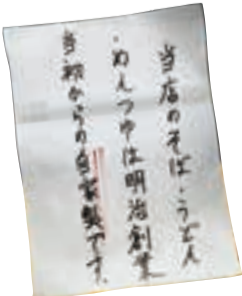 当店のそば・うどん
・めんつゆは明治創業
当初からの自家製です。